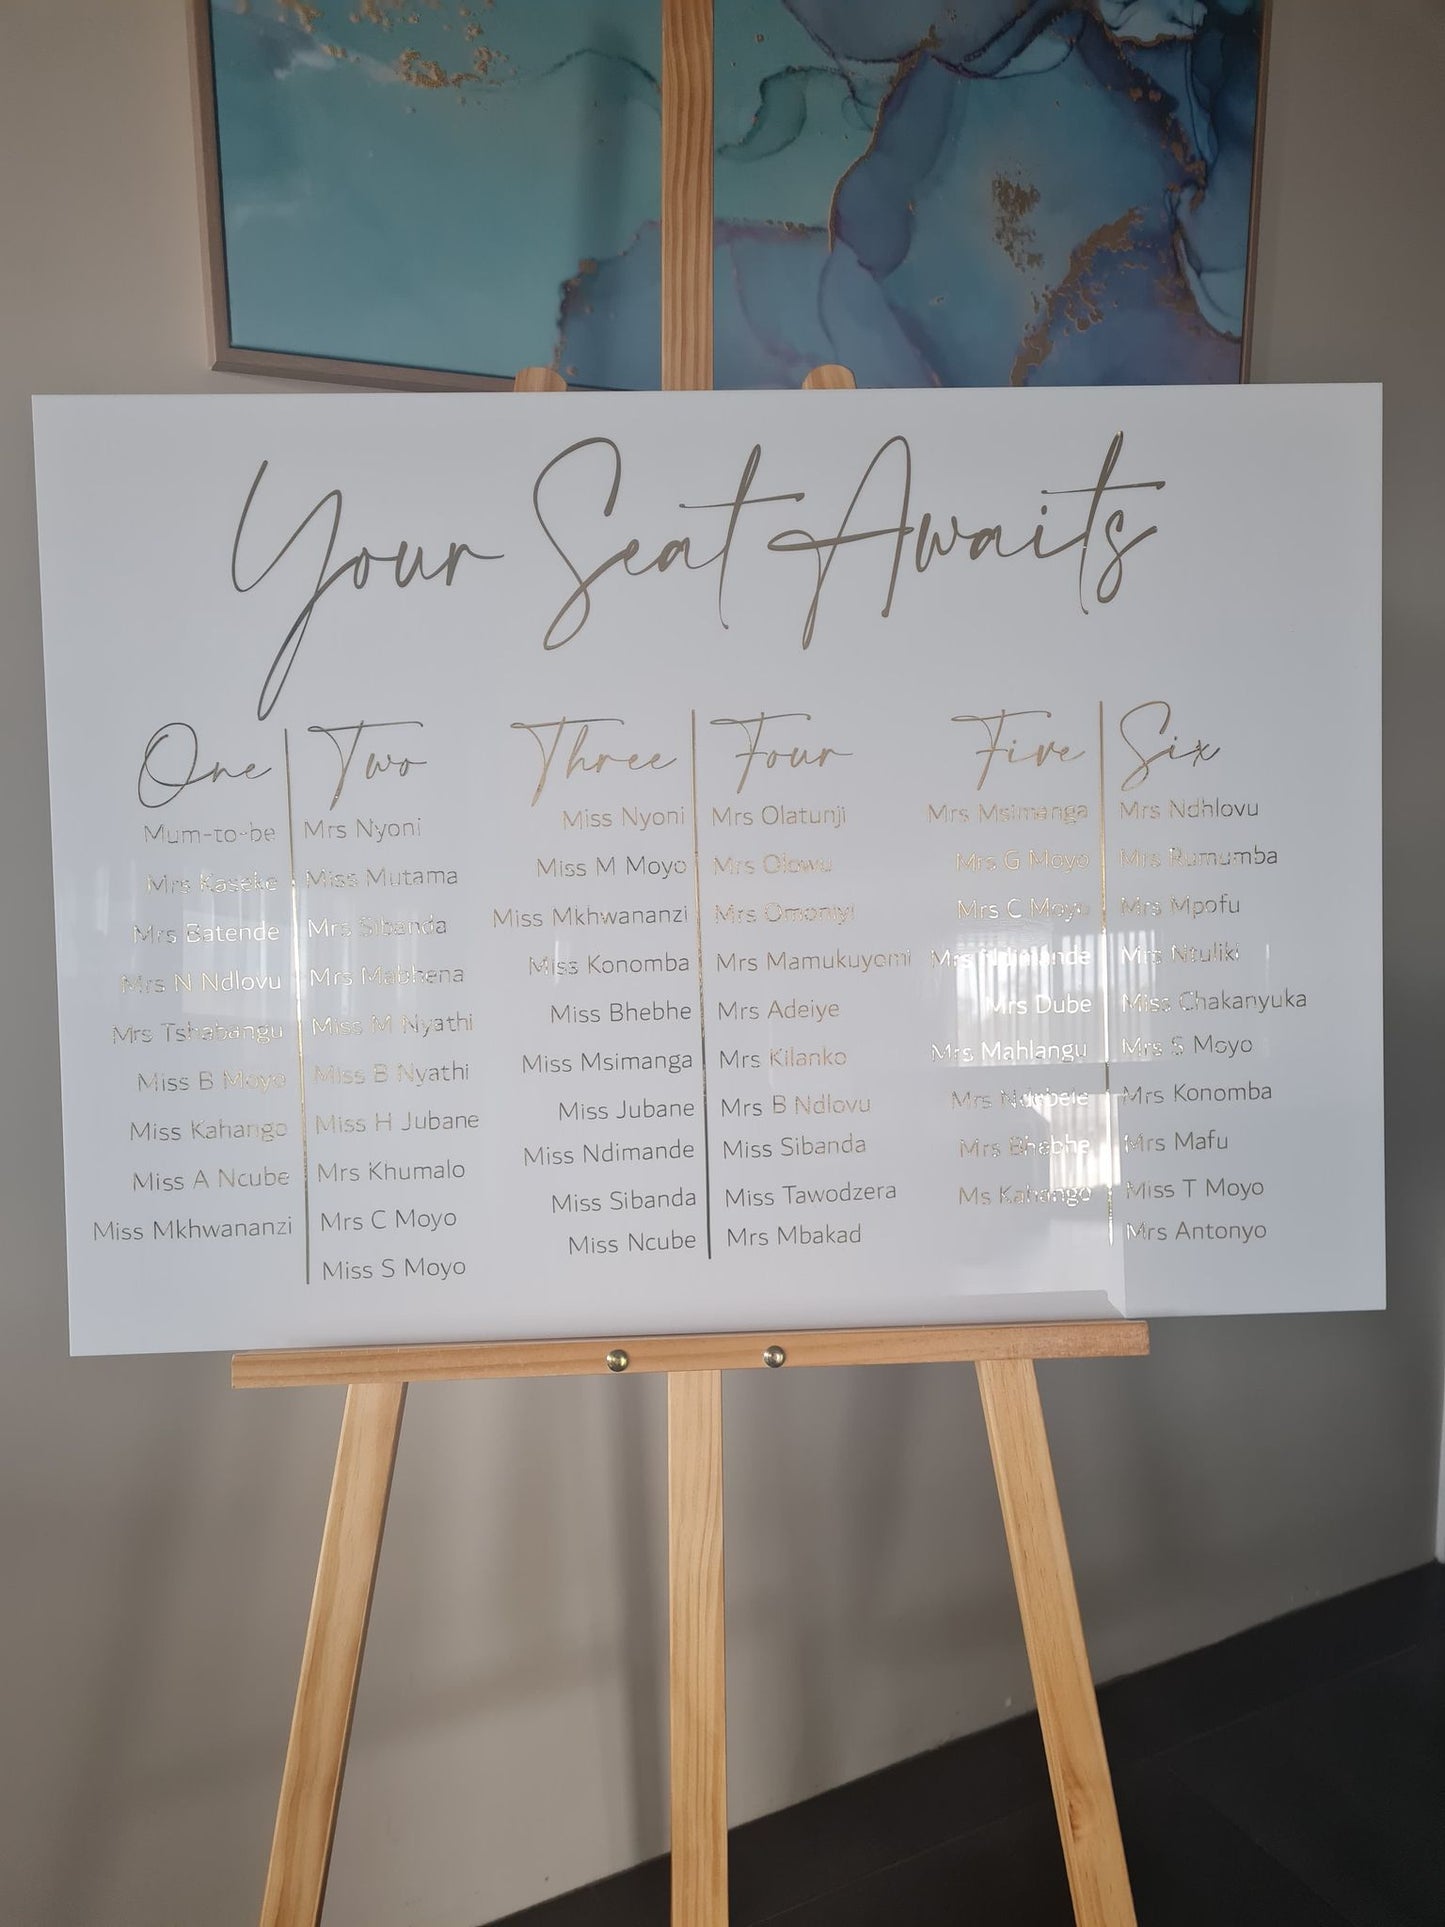 Your Seat Awaits
One
Mum-to-be
Mrs Kaseke
Mrs Batende
Mrs N Ndlovu
Mrs Tshabangu
Miss B Moyo
Miss Kahango
Miss A Ncube
Miss Mkhwananzi
Two
Mrs Nyoni
Miss Mutama
Mrs Sibanda
Mrs Mabhena
Miss M Nyathi
Miss B Nyathi
Miss H Jubane
Mrs Khumalo
Mrs C Moyo
Miss S Moyo
Three
Miss Nyoni
Miss M Moyo
Miss Mkhwananzi
Miss Konomba
Miss Bhebhe
Miss Msimanga
Miss Jubane
Miss Ndimande
Miss Sibanda
Miss Ncube
Four
Mrs Olatunji
Mrs Olowu
Mrs Omoniyi
Mrs Mamukuyomi
Mrs Adeiye
Mrs Kilanko
Mrs B Ndlovu
Miss Sibanda
Miss Tawodzera
Mrs Mbakad
Five
Mrs Msimanga
Mrs G Moyo
Mrs C Moyo
Mrs Ndimande
Mrs Dube
Mrs Mahlangu
Mrs Ndebele
Mrs Bhebhe
Ms Kahango
Six
Mrs Ndhlovu
Mrs Rumumba
Mrs Mpofu
Mrs Ntuliki
Miss Chakanyuka
Mrs S Moyo
Mrs Konomba
Mrs Mafu
Miss T Moyo
Mrs Antonyo